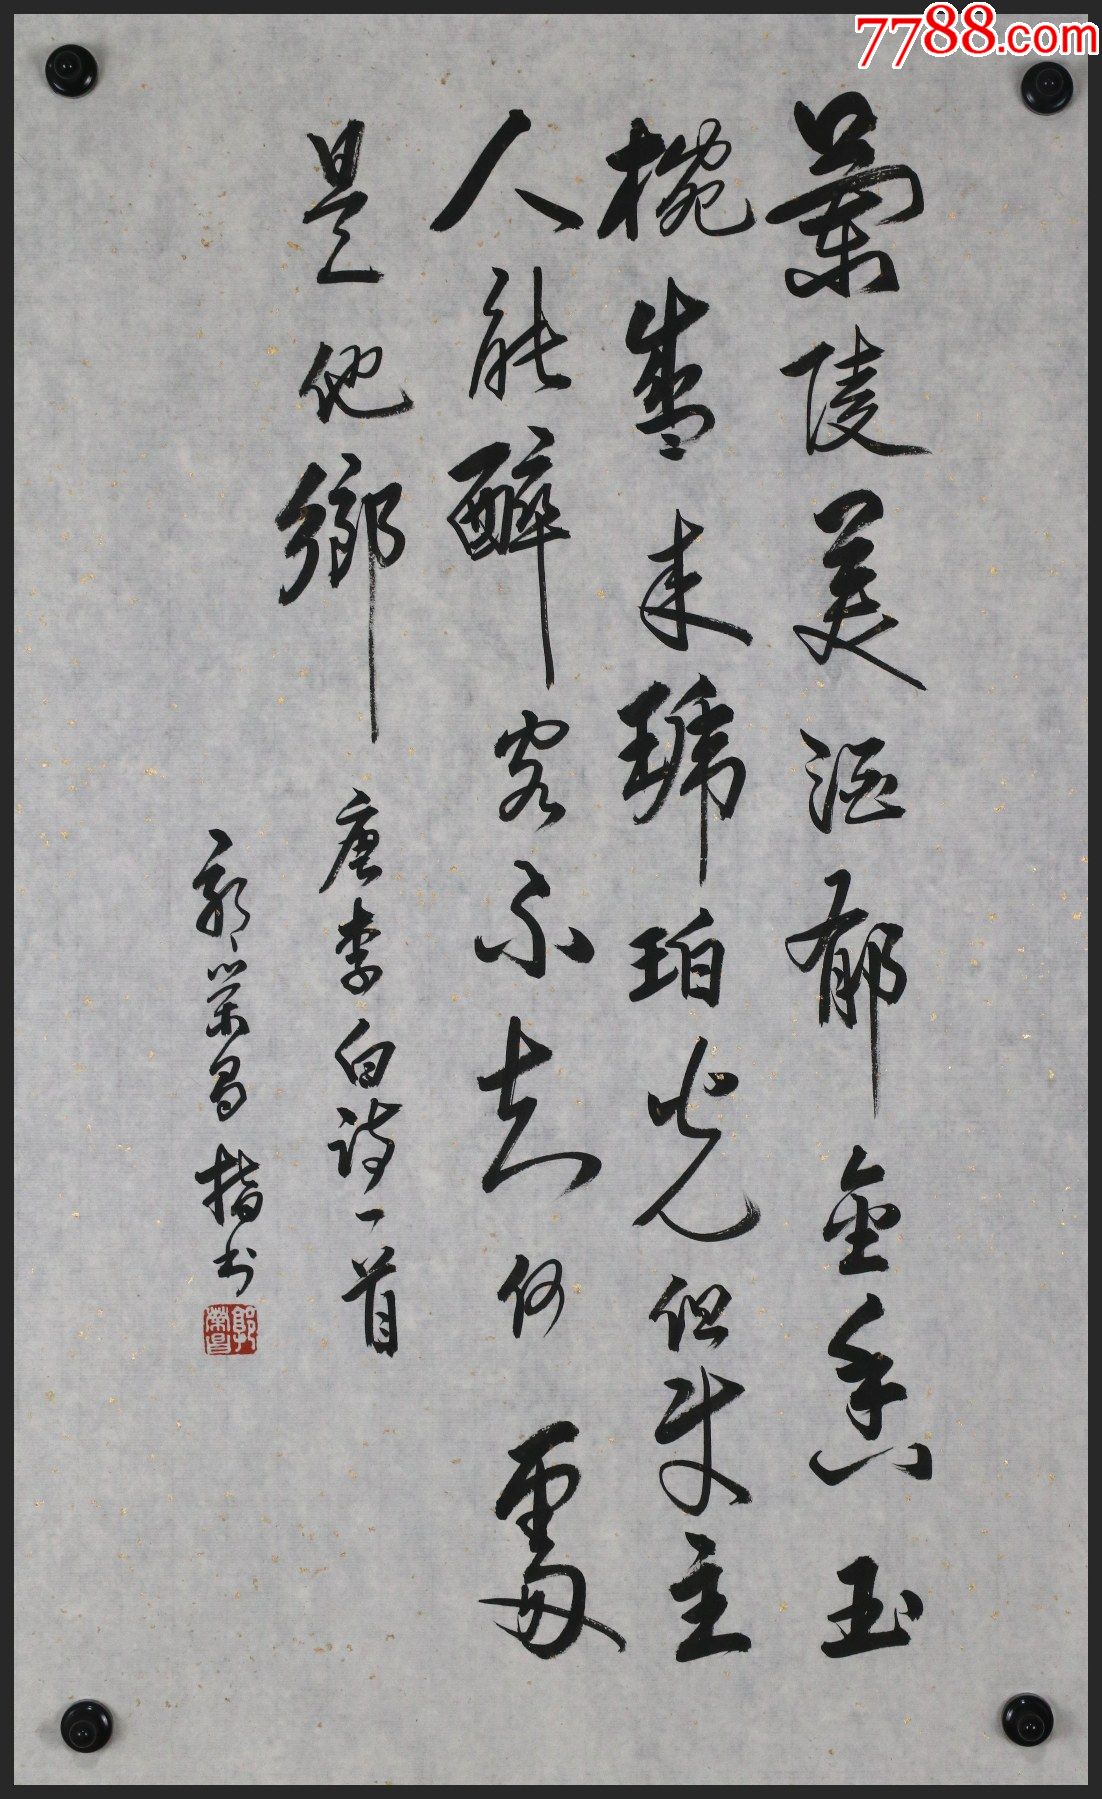 7788.com
蘭陵美酒郁金香玉
椀盛来琥珀光但使主
人能醉客不知何處
是他鄉 唐李白詩一首
郭榮昌指书
郭榮昌